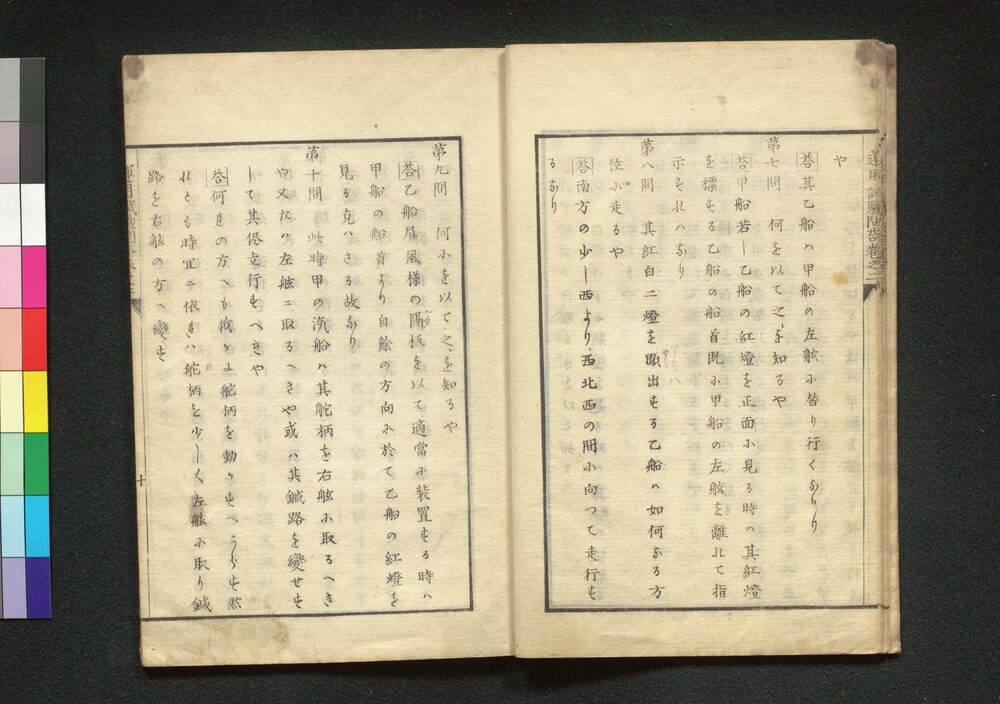 や
答其乙船ハ甲船の左舷に替り行くなり
第七問　何を以て之を知るや
答甲船若し乙船の紅燈を正面に見る時ハ其紅燈
を標する乙船の船首既に甲船の左舷を離れて指
示すれハなり
第八問　其紅白二燈を顕出する乙船ハ如何なる方
位に走るや
答南方の少し西より西北西の間に向つて走行す
るなり
第九問　何にを以て之を知るや
答乙船屏風様の隔板を以て適當に装置する時ハ
甲船の船首より自餘の方向に於て乙船の紅燈を
見る克ハさる故なり
第十問　此時甲の汽船ハ其舵柄を右舷に取るへき
や又たハ左舷ニ取るへきや或ハ其鍼路を變せす
して其侭走行すへきや
答何れの方へも我かに舵柄を動かすへからす然
れとも時宜ニ依れハ舵柄を少しく左舷に取り鍼
路を右舷の方へ變す
十